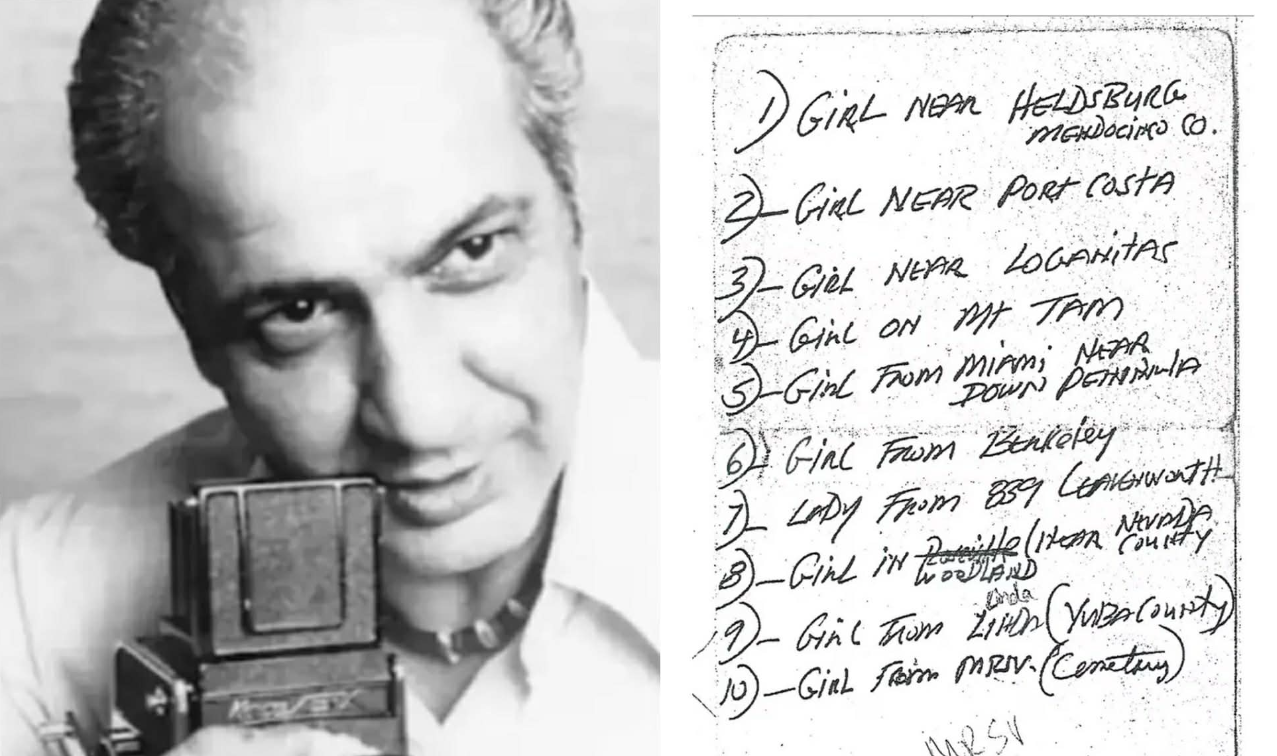 1) GIRL NEAR HELDSBURG
MENDOCINO CO.
2) – GIRL NEAR PORT COSTA
3) – GIRL NEAR LOGANITAS
4) – GIRL ON MT TAM
5) – GIRL FROM MIAMI NEAR
DOWN PENINULA
6) – GIRL FROM Berkeley
7) – LADY FROM 839 LEAVENWORTH
8) – GIRL IN (NEAR NEVADA
COUNTY
WOODLAND
Linda
9) – GIRL FROM LINDA (YUBA COUNTY)
10) – GIRL FROM MRSV. (Cemetary)
MRSV